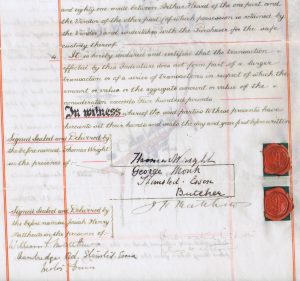 and eighty one made between Arthur Head of the one part and
the Vendor of the other part (of which possession is retained by
the Vendor) and undertakes with the Purchaser for the safe
custody thereof
4. It is hereby understood and certified that the transaction
effected by this Indenture does not form part of a larger
transaction or of a series of transactions in respect of which the
amount or value or the aggregate amount or value of the
consideration exceeds five hundred pounds
In witness whereof the said parties to these presents have
hereunto set their hands and seals the day and year first before written
Signed Sealed and Delivered by
the before named Thomas Wright
in the presence of
Thomas Wright
George Monk
Stansted. Essex
Butcher
Signed Sealed and Delivered by
the before named Josiah Henry
Matthews in the presence of
William G. Matthews
Cambridge Rd, Stansted, Essex